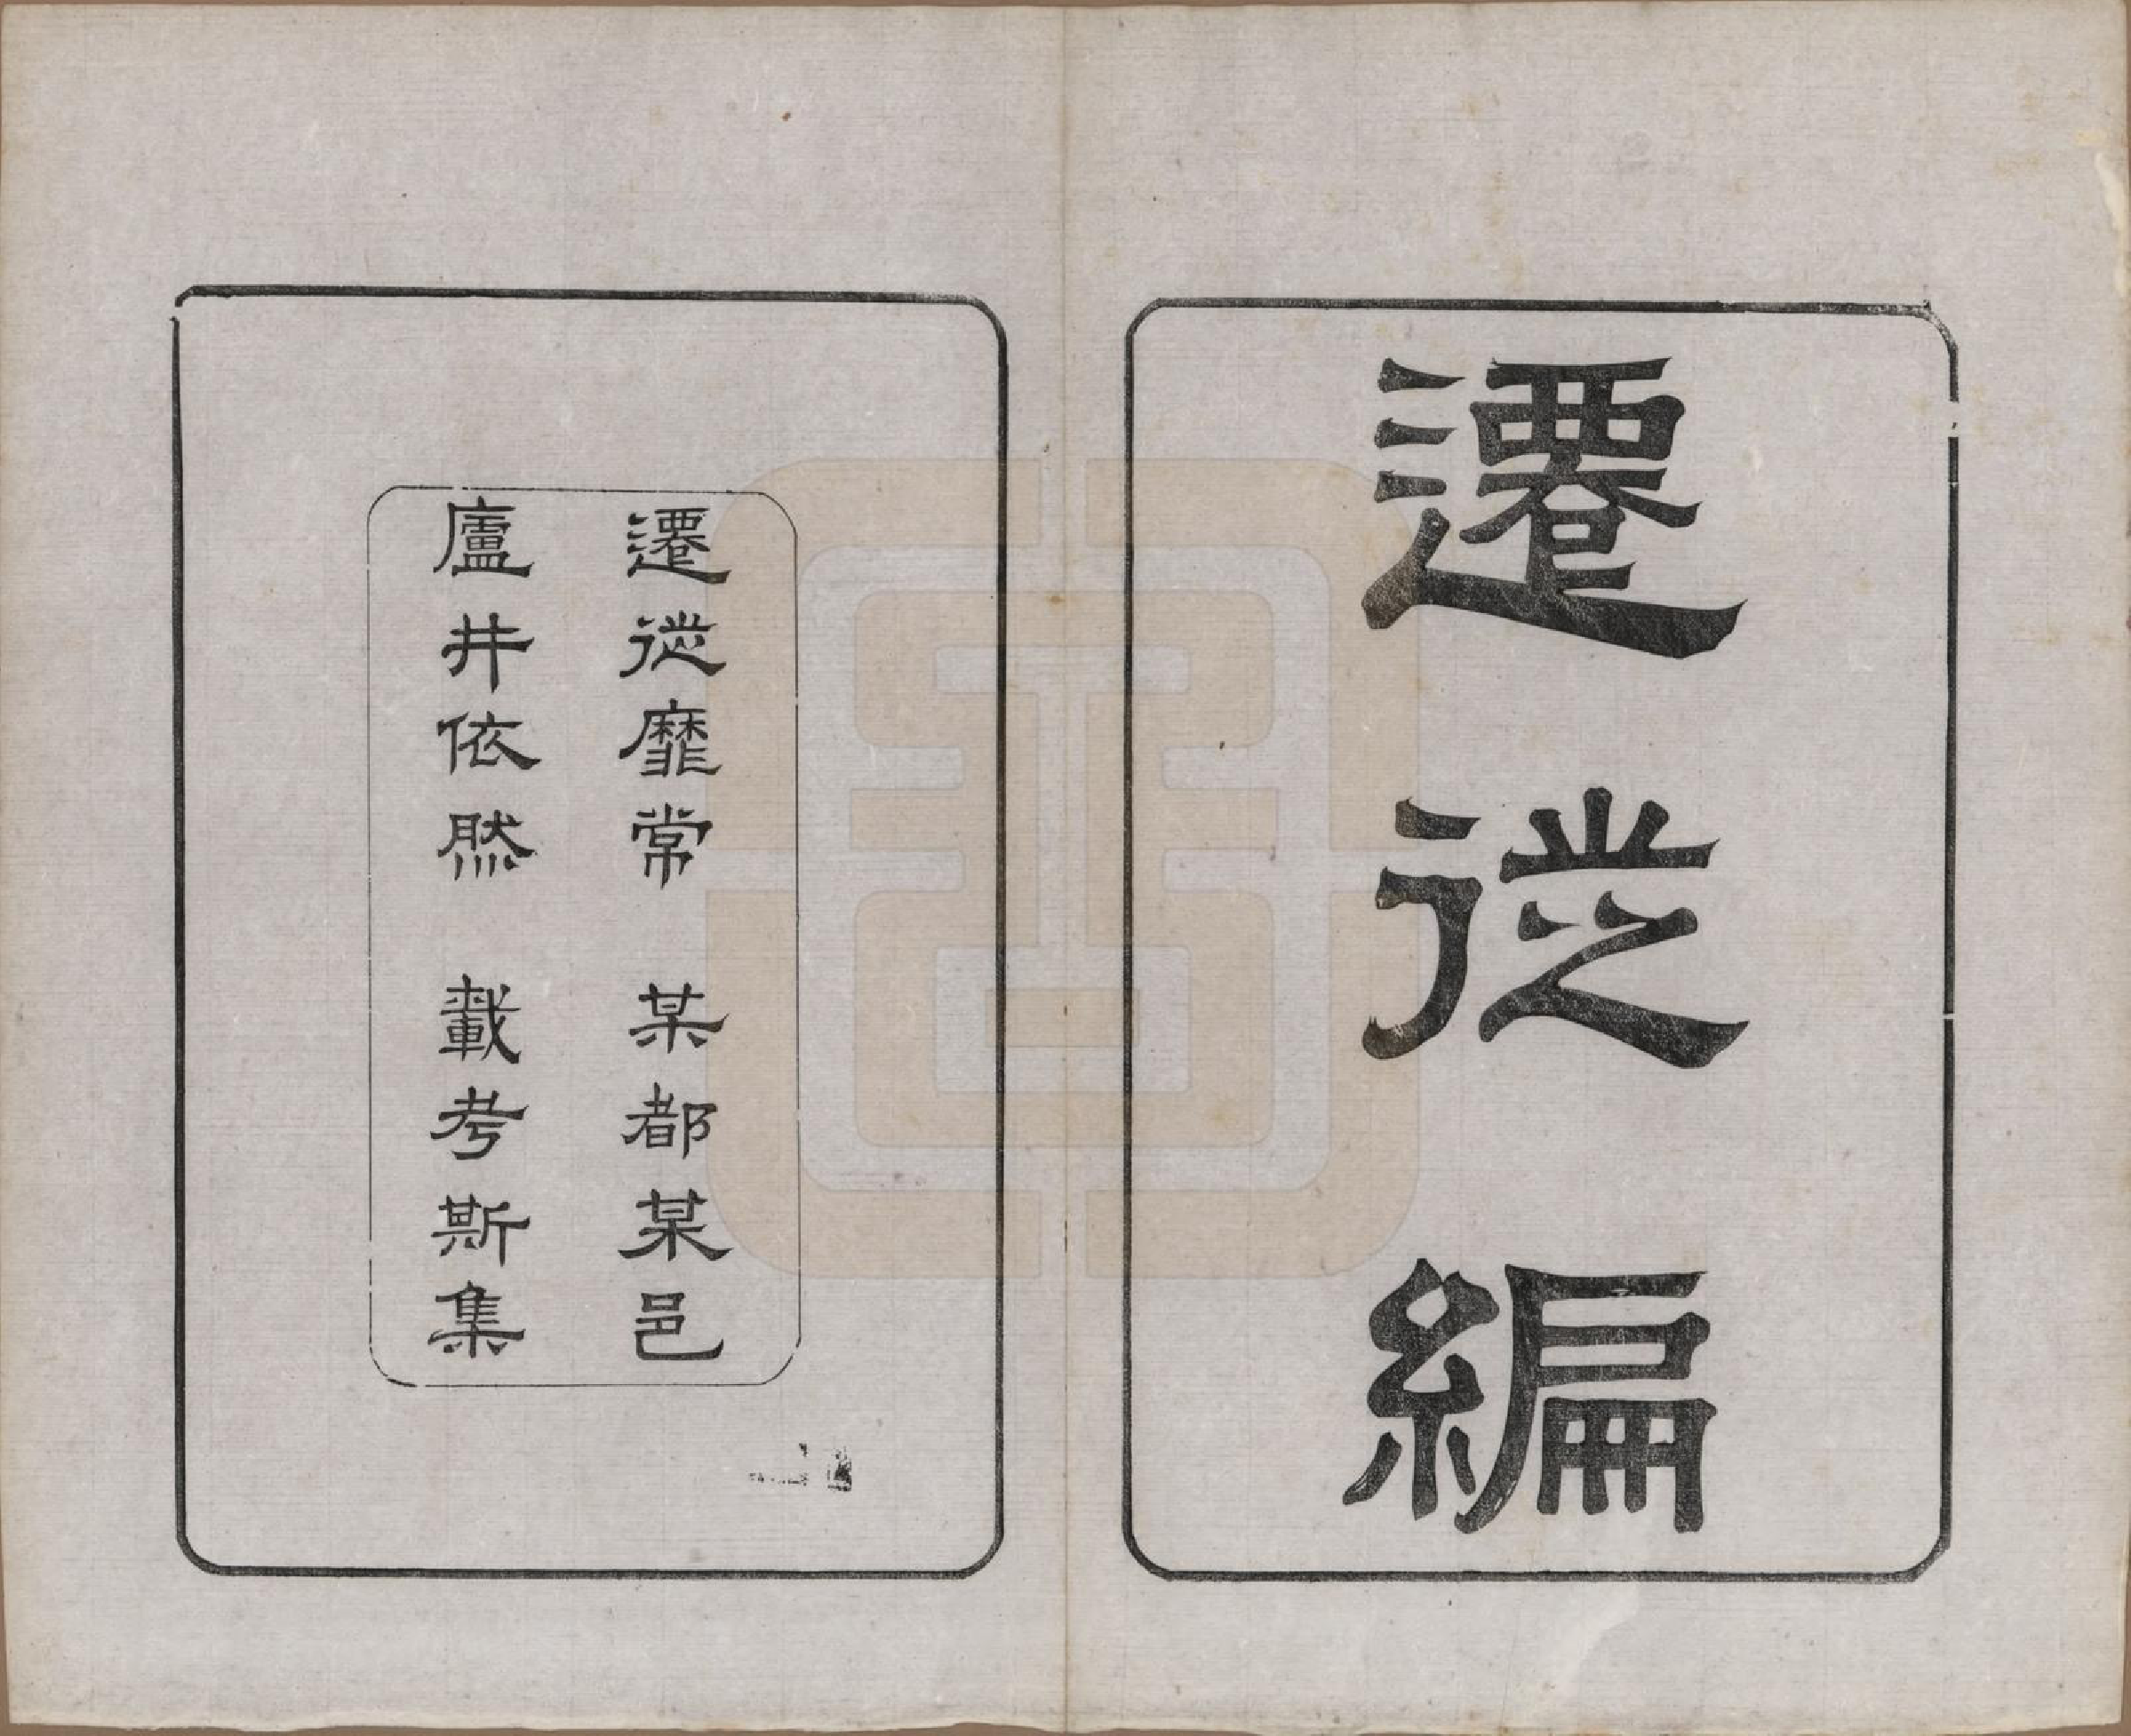 遷徙編
遷徙靡常 某都某邑
廬井依然 載考斯集